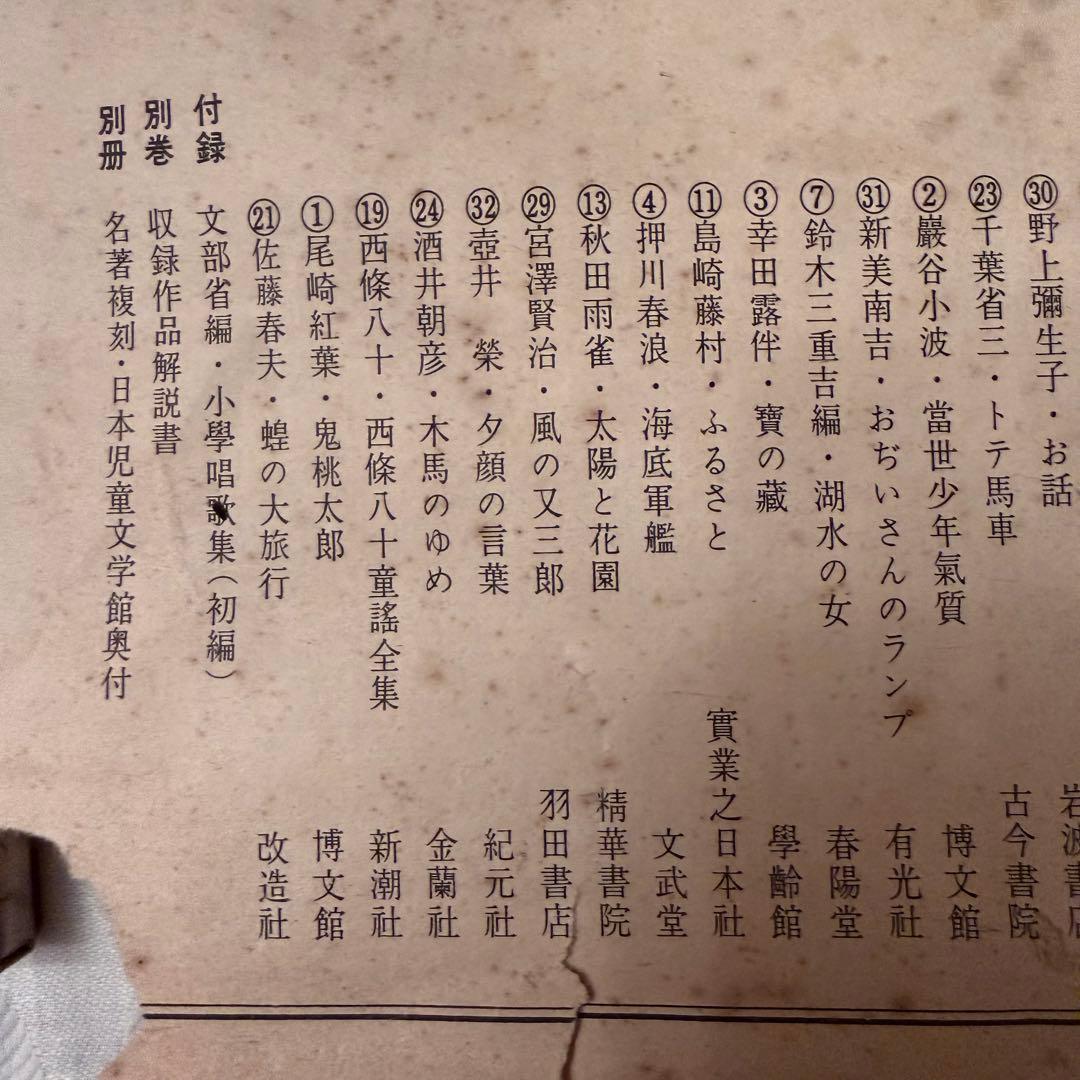 ㉚野上彌生子・お話 岩波書店
㉓千葉省三・トテ馬車 古今書院
②巖谷小波・當世少年氣質 博文館
㉛新美南吉・おぢいさんのランプ 有光社
⑦鈴木三重吉編・湖水の女 春陽堂
③幸田露伴・寶の藏 學齡館
⑪島崎藤村・ふるさと 實業之日本社
④押川春浪・海底軍艦 文武堂
⑬秋田雨雀・太陽と花園 精華書院
㉙宮澤賢治・風の又三郎 羽田書店
㉜壺井 榮・夕顔の言葉 紀元社
㉔酒井朝彦・木馬のゆめ 金蘭社
⑲西條八十・西條八十童謠全集 新潮社
①尾崎紅葉・鬼桃太郎 博文館
㉑佐藤春夫・蝗の大旅行 改造社
付録 文部省編・小學唱歌集（初編）
別巻 収録作品解説書
別冊 名著複刻・日本児童文学館奥付